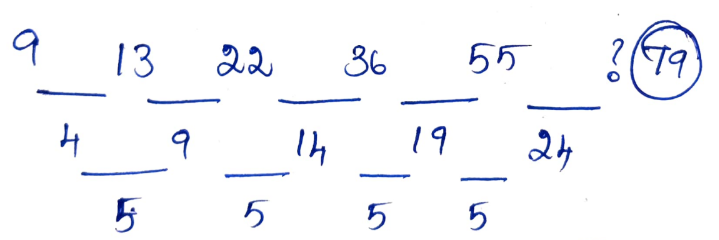 9 13 22 36 55 ? 79
4 9 14 19 24
5 5 5 5